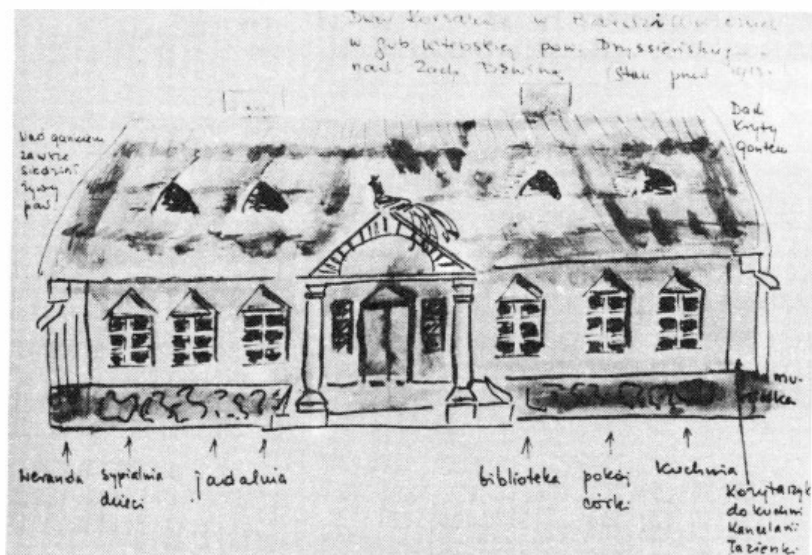 Dwór Korsaków w
w gub. Witebskiej pow. Dryssieńskiego
nad Zach. Dźwiną (Stan przed
Nad gankiem
zawsze
siedział
żywy
paw
Dach
Kryty
Gontem
weranda
sypialnia
dzieci
jadalnia
biblioteka
pokój
córki
Kuchnia
Korytarzyk
do kuchni
Kancelarii
Łazienki